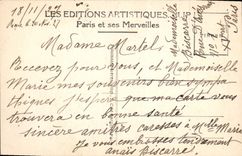 18/11/27
LES EDITIONS ARTISTIQUES
Paris et ses Merveilles
Madame Martel
Recevez pour vous, et Mademoiselle
Marie mes souvenirs bien sympa
thiques j'espère que ma carte vous
trouvera en bonne santé
sincère amitiés caresses à Mlle Marie
Je vous embrasse tendrement
anaïs Biscarre
Mademoiselle
Biscarre
Paris